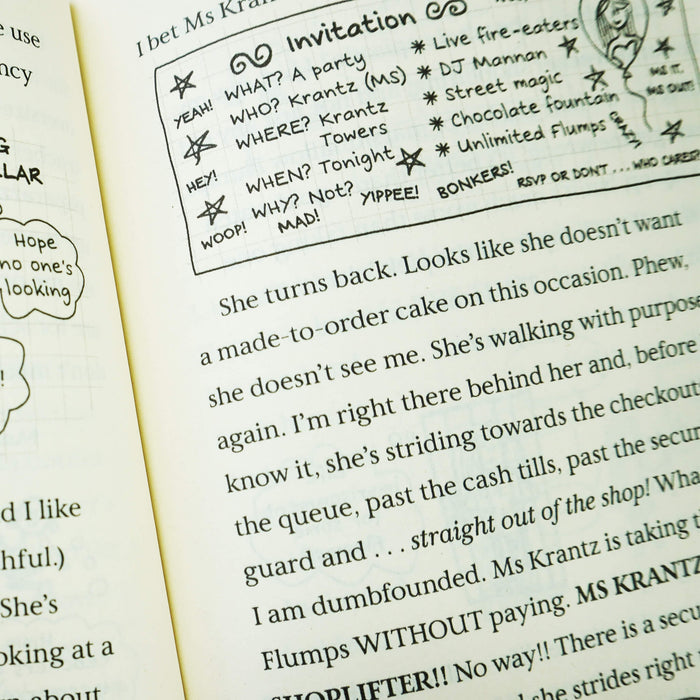 e use
ncy
G
LLAR
Hope
no one's
looking
!
d I like
hful.)
She's
oking at a
about
I bet Ms Kran
Invitation
YEAH!
HEY!
WOOP!
WHAT? A party
WHO? Krantz (MS)
WHERE? Krantz
Towers
WHEN? Tonight
WHY? Not?
MAD!
YIPPEE!
BONKERS!
* Live fire-eaters
* DJ Mannan
* Street magic
* Chocolate fountain
* Unlimited Flumps
RSVP OR DONT ... WHO CARES!
She turns back. Looks like she doesn't want
a made-to-order cake on this occasion. Phew,
she doesn't see me. She's walking with purpose
again. I'm right there behind her and, before
know it, she's striding towards the checkout
the queue, past the cash tills, past the secur
guard and ... straight out of the shop! Wha
I am dumbfounded. Ms Krantz is taking t
Flumps WITHOUT paying. MS KRANTZ
SHOPLIFTER!! No way!! There is a secu
d she strides right